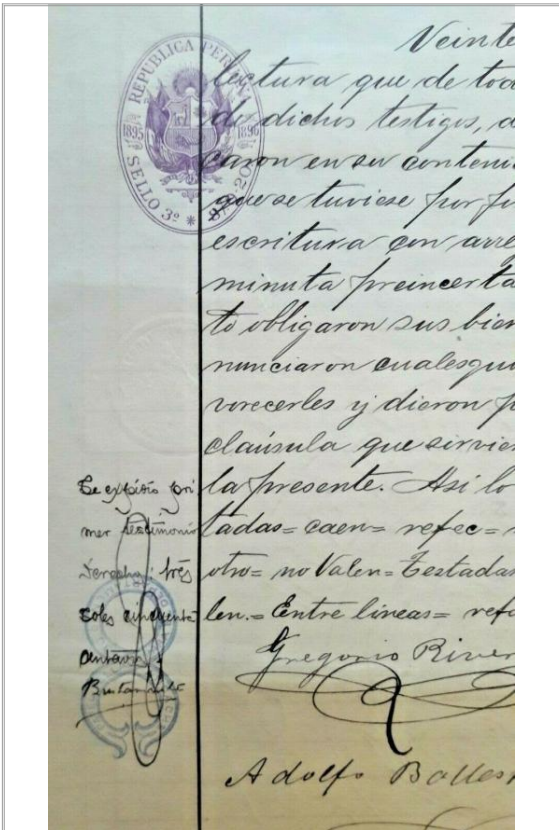 Veinte
REPUBLICA PERUANA
1895 1896
SELLO 3º
lectura que de tod
de dichos testigos, a
caron en su conteni
que se tuviese por fi
escritura con arre
minuta preincerta
to obligaron sus bien
nunciaron cualesqui
vorecerles y dieron p
claúsula que sirvie
la presente. Asi lo
tadas= caen= refec=
otro= no Valen= Testadas
len.= Entre lineas= refa
Gregorio River
Adolfo Balles
Se expidió pri
mer testimonio
Derechos: tres
soles cincuenta
centavos
Bustamante